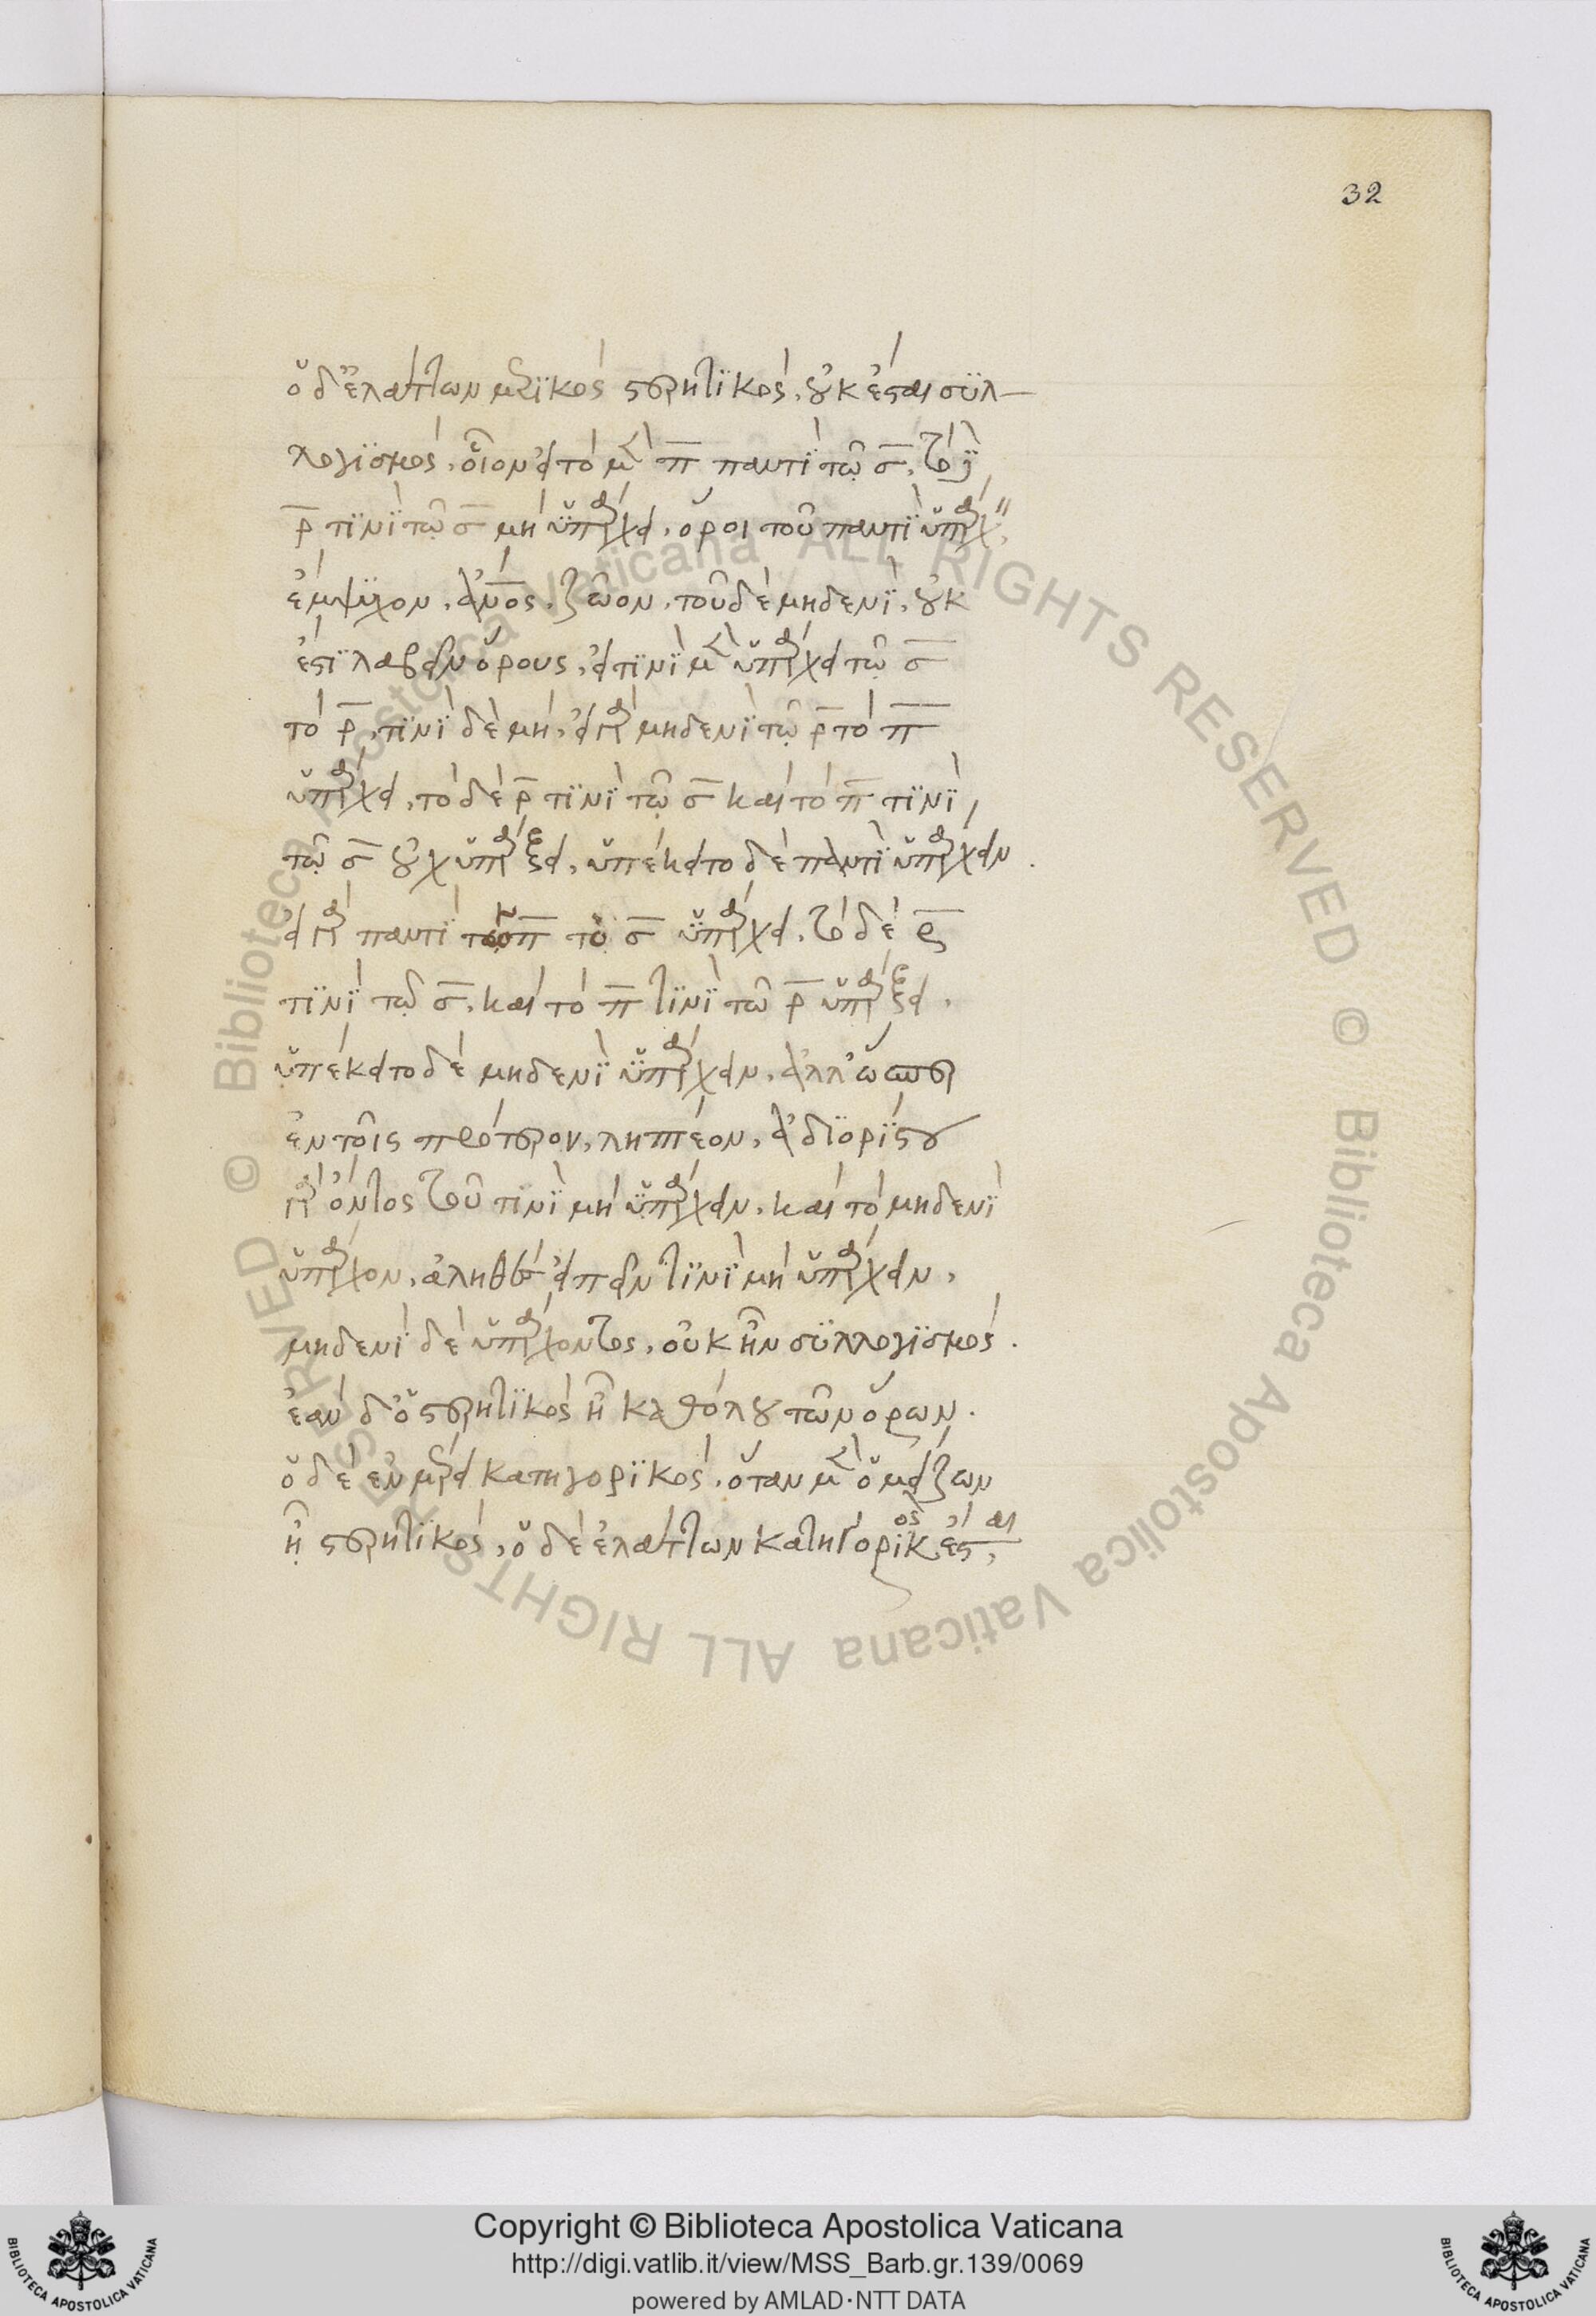 32
ὁ δ' ἐλάττων μερικὸς στερητικὸς, οὐκ ἔσται συλ-
λογισμός, οἷον εἰ τὸ μὲν π παντὶ τῷ σ, τὸ δὲ
ρ τινὶ τῷ σ μὴ ὑπάρχει, ὅροι τοῦ παντὶ ὑπάρχειν,
ἔμψυχον, ἄνος, ζῶον, τοῦ δὲ μηδενὶ, οὐκ
ἔστι λαβεῖν ὅρους, εἰ τινὶ μὲν ὑπάρχει τῷ σ
τὸ ρ, τινὶ δὲ μή, εἰ γὰρ μηδενὶ τῷ ρ τὸ π
ὑπάρχει, τὸ δὲ ρ τινὶ τῷ σ καὶ τὸ π τινὶ
τῷ σ οὐχ ὑπάρξει, ὑπέκειτο δὲ παντὶ ὑπάρχειν.
εἰ γὰρ παντὶ τῷ π τὸ σ ὑπάρχει, τὸ δὲ ρ
τινὶ τῷ σ, καὶ τὸ π τινὶ τῷ ρ ὑπάρξει,
ὑπέκειτο δὲ μηδενὶ ὑπάρχειν, ἀλλ' ὥσπερ
ἐν τοῖς πρότερον, ληπτέον, ἀδιορίστου
γὰρ ὄντος τοῦ τινὶ μὴ ὑπάρχειν, καὶ τὸ μηδενὶ
ὑπάρχον, ἀληθὲς εἰπεῖν τινὶ μὴ ὑπάρχειν,
μηδενὶ δὲ ὑπάρχοντος, οὐκ ἦν συλλογισμός.
ἐὰν δ' ὁ στερητικὸς ᾖ καθόλου τῶν ὅρων.
ὁ δὲ ἐν μέρει κατηγορικός, ὅταν μὲν ὁ μείζων
ᾖ στερητικός, ὁ δὲ ἐλάττων κατηγορικὸς ἔσται
Copyright © Biblioteca Apostolica Vaticana
http://digi.vatlib.it/view/MSS_Barb.gr.139/0069
powered by AMLAD·NTT DATA
BIBLIOTECA APOSTOLICA VATICANA
BIBLIOTECA APOSTOLICA VATICANA
© Biblioteca Apostolica Vaticana ALL RIGHTS RESERVED © Biblioteca Apostolica Vaticana ALL RIGHTS RESERVED